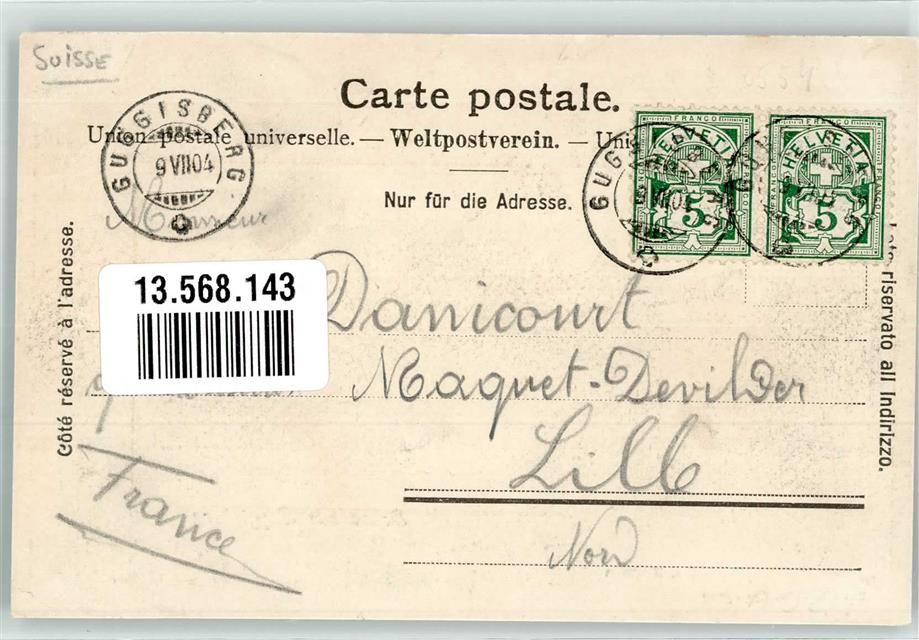 Suisse
Carte postale.
Union postale universelle. — Weltpostverein. — Uni
Nur für die Adresse.
GUGGISBERG
9 VII 04
FRANCO
HELVETIA
5
FRANCO
HELVETIA
5
Monsieur
13.568.143
Danicourt
Maquet-Devilder
Lille
Nord
France
Côté réservé à l'adresse.
Lato riservato all Indirizzo.